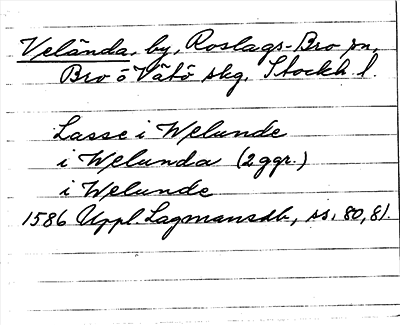 Velända, by, Roslags-Bro sn,
Bro o Vätö skg, Stockh. l.
Lasse i Welunde
i Welunda (2 ggr.)
i Welunde
1586 Uppl. Lagmansdb, ss. 80, 81.